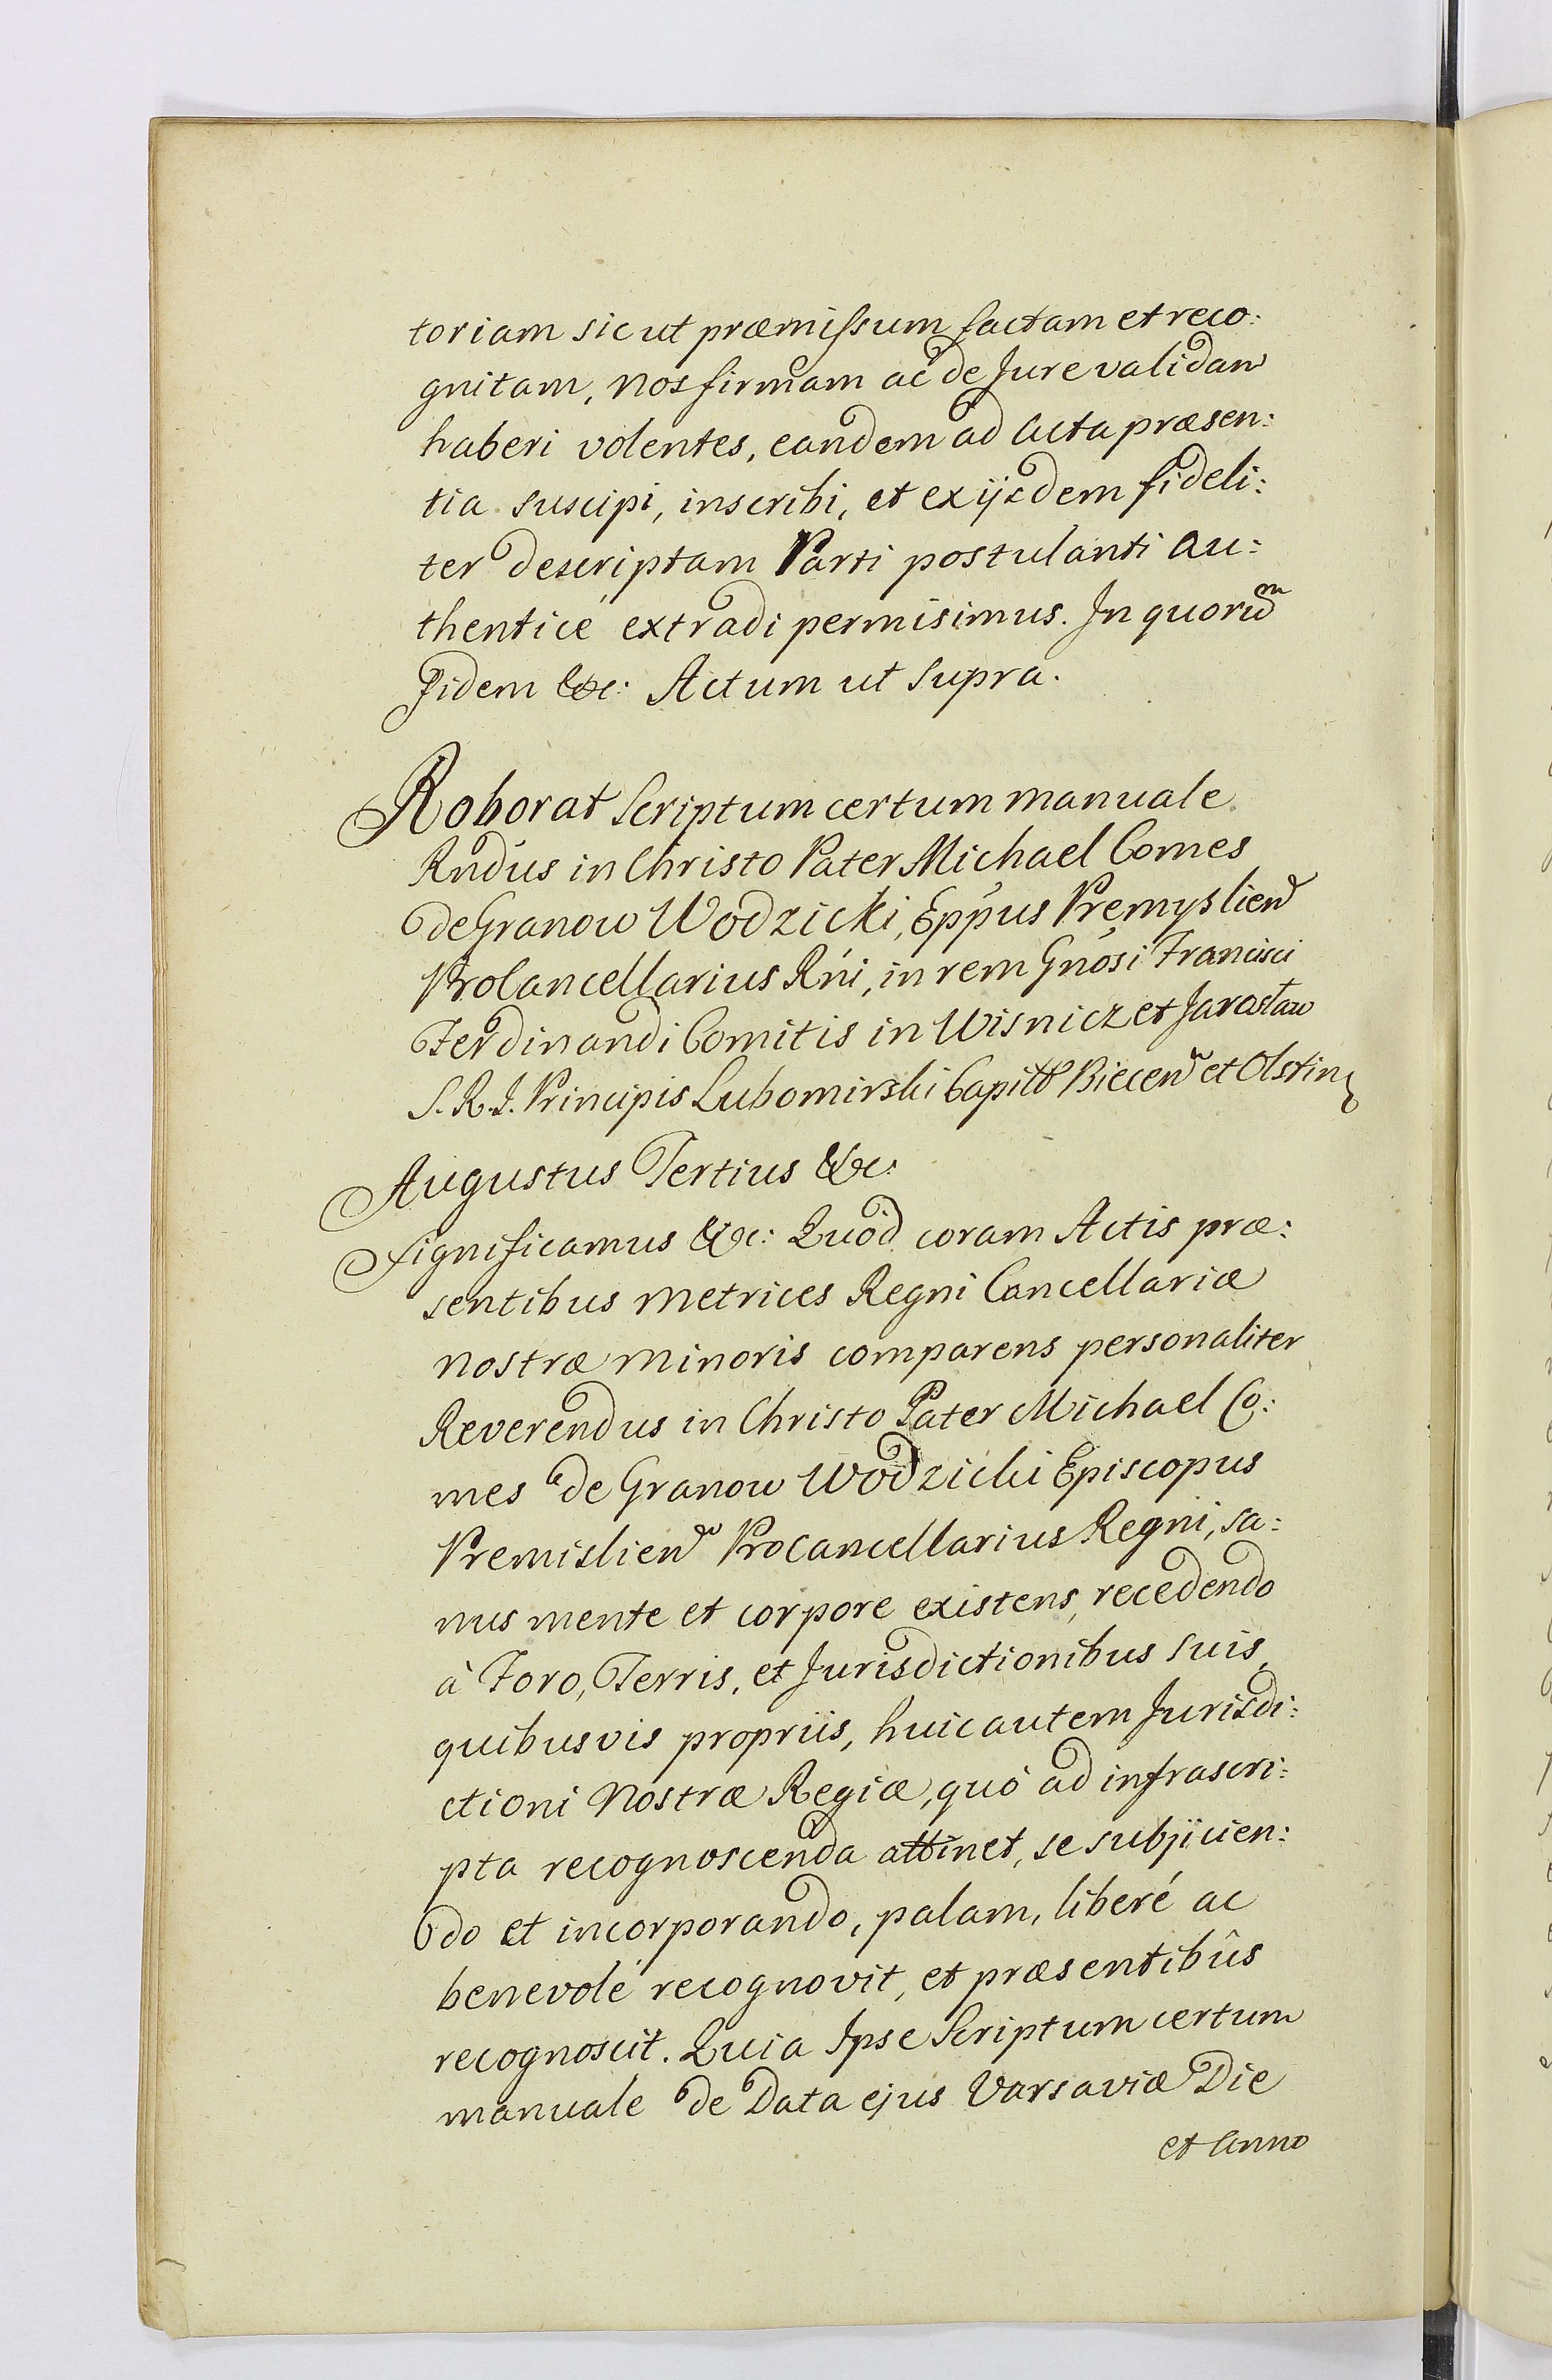 toriam sicut præmissum factam et reco:
gnitam, nos firmam ac de Jure validam
haberi volentes, eandem ad Acta præsen:
tia suscipi, inscribi, et ex ijsdem fideli:
ter descriptam Parti postulanti au:
thenticé extradi permisimus. In quorum
Fidem &c: Actum ut supra.
Roborat Scriptum certum manuale
Rndus in Christo Pater Michael Comes
de Granow Wodzicki, Eppus Premyslien
ProCancellarius Rńi, in rem Gnósi Francisci
Ferdinandi Comitis in Wisnicz et Jarosław
S. R. I. Principis Lubomirski Capit Biecen et Olstin
Augustus Tertius &c:
Significamus &c: Quód coram Actis præ:
sentibus Metrices Regni Cancellariæ
nostræ minoris comparens personaliter
Reverendus in Christo Pater Michael Co:
mes de Granow Wodzicki Episcopus
Premislien ProCancellarius Regni, sa:
nus mente et corpore existens, recedendo
à Foro, Terris, et Jurisdictionibus suis,
quibusvis propriis, huic autem Jurisdi:
ctioni Nostræ Regiæ, quó ad infrascri:
pta recognoscenda attinet, se subjicien:
do et incorporando, palam, liberé ac
benevolé recognovit, et præsentibûs
recognoscit. Quia Ipse Scriptum certum
manuale de Data ejus Varsaviæ Die
et Anno